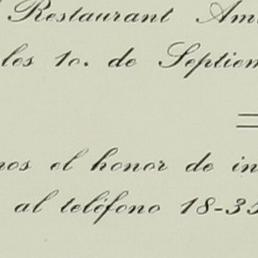 Restaurant Am
les 1o. de Septiem
nos el honor de in
al teléfono 18-35